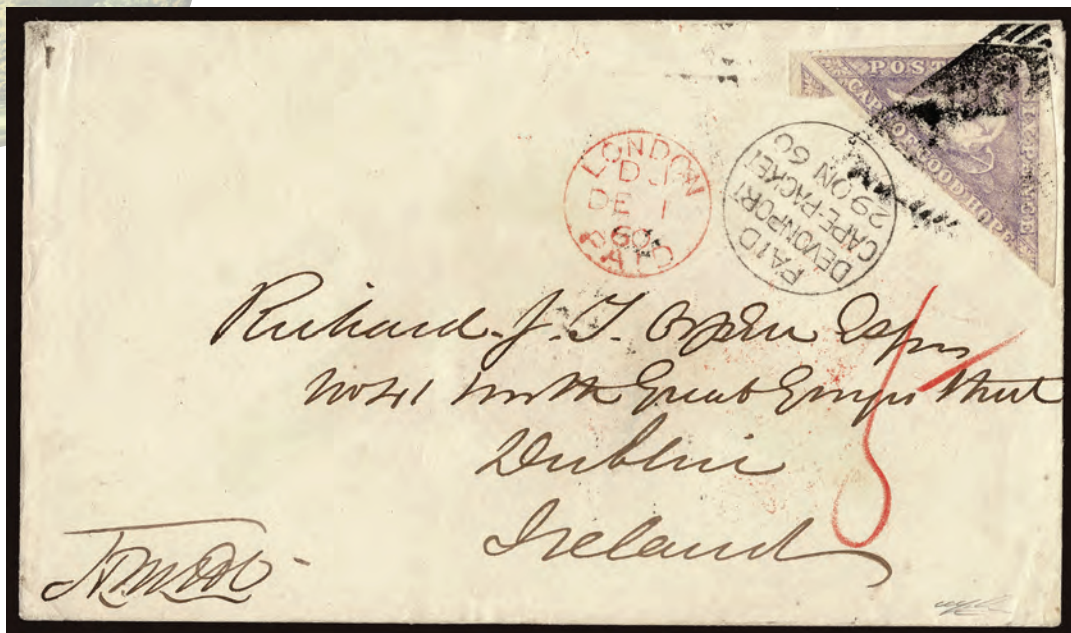 POSTAGE
CAPE OF GOOD HOPE
SIX PENCE
LONDON
DJ
DE 1
60
PAID
PAID
DEVONPORT
CAPE-PACKET
29 ON 60
Richard. J. T. Esqre
No 41 North Great George Street
Dublin
Ireland